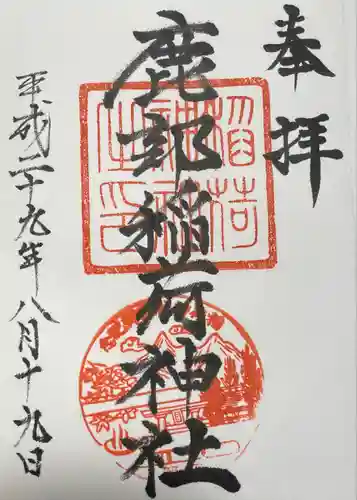 奉拝
鹿部稲荷神社
平成二十九年八月十九日